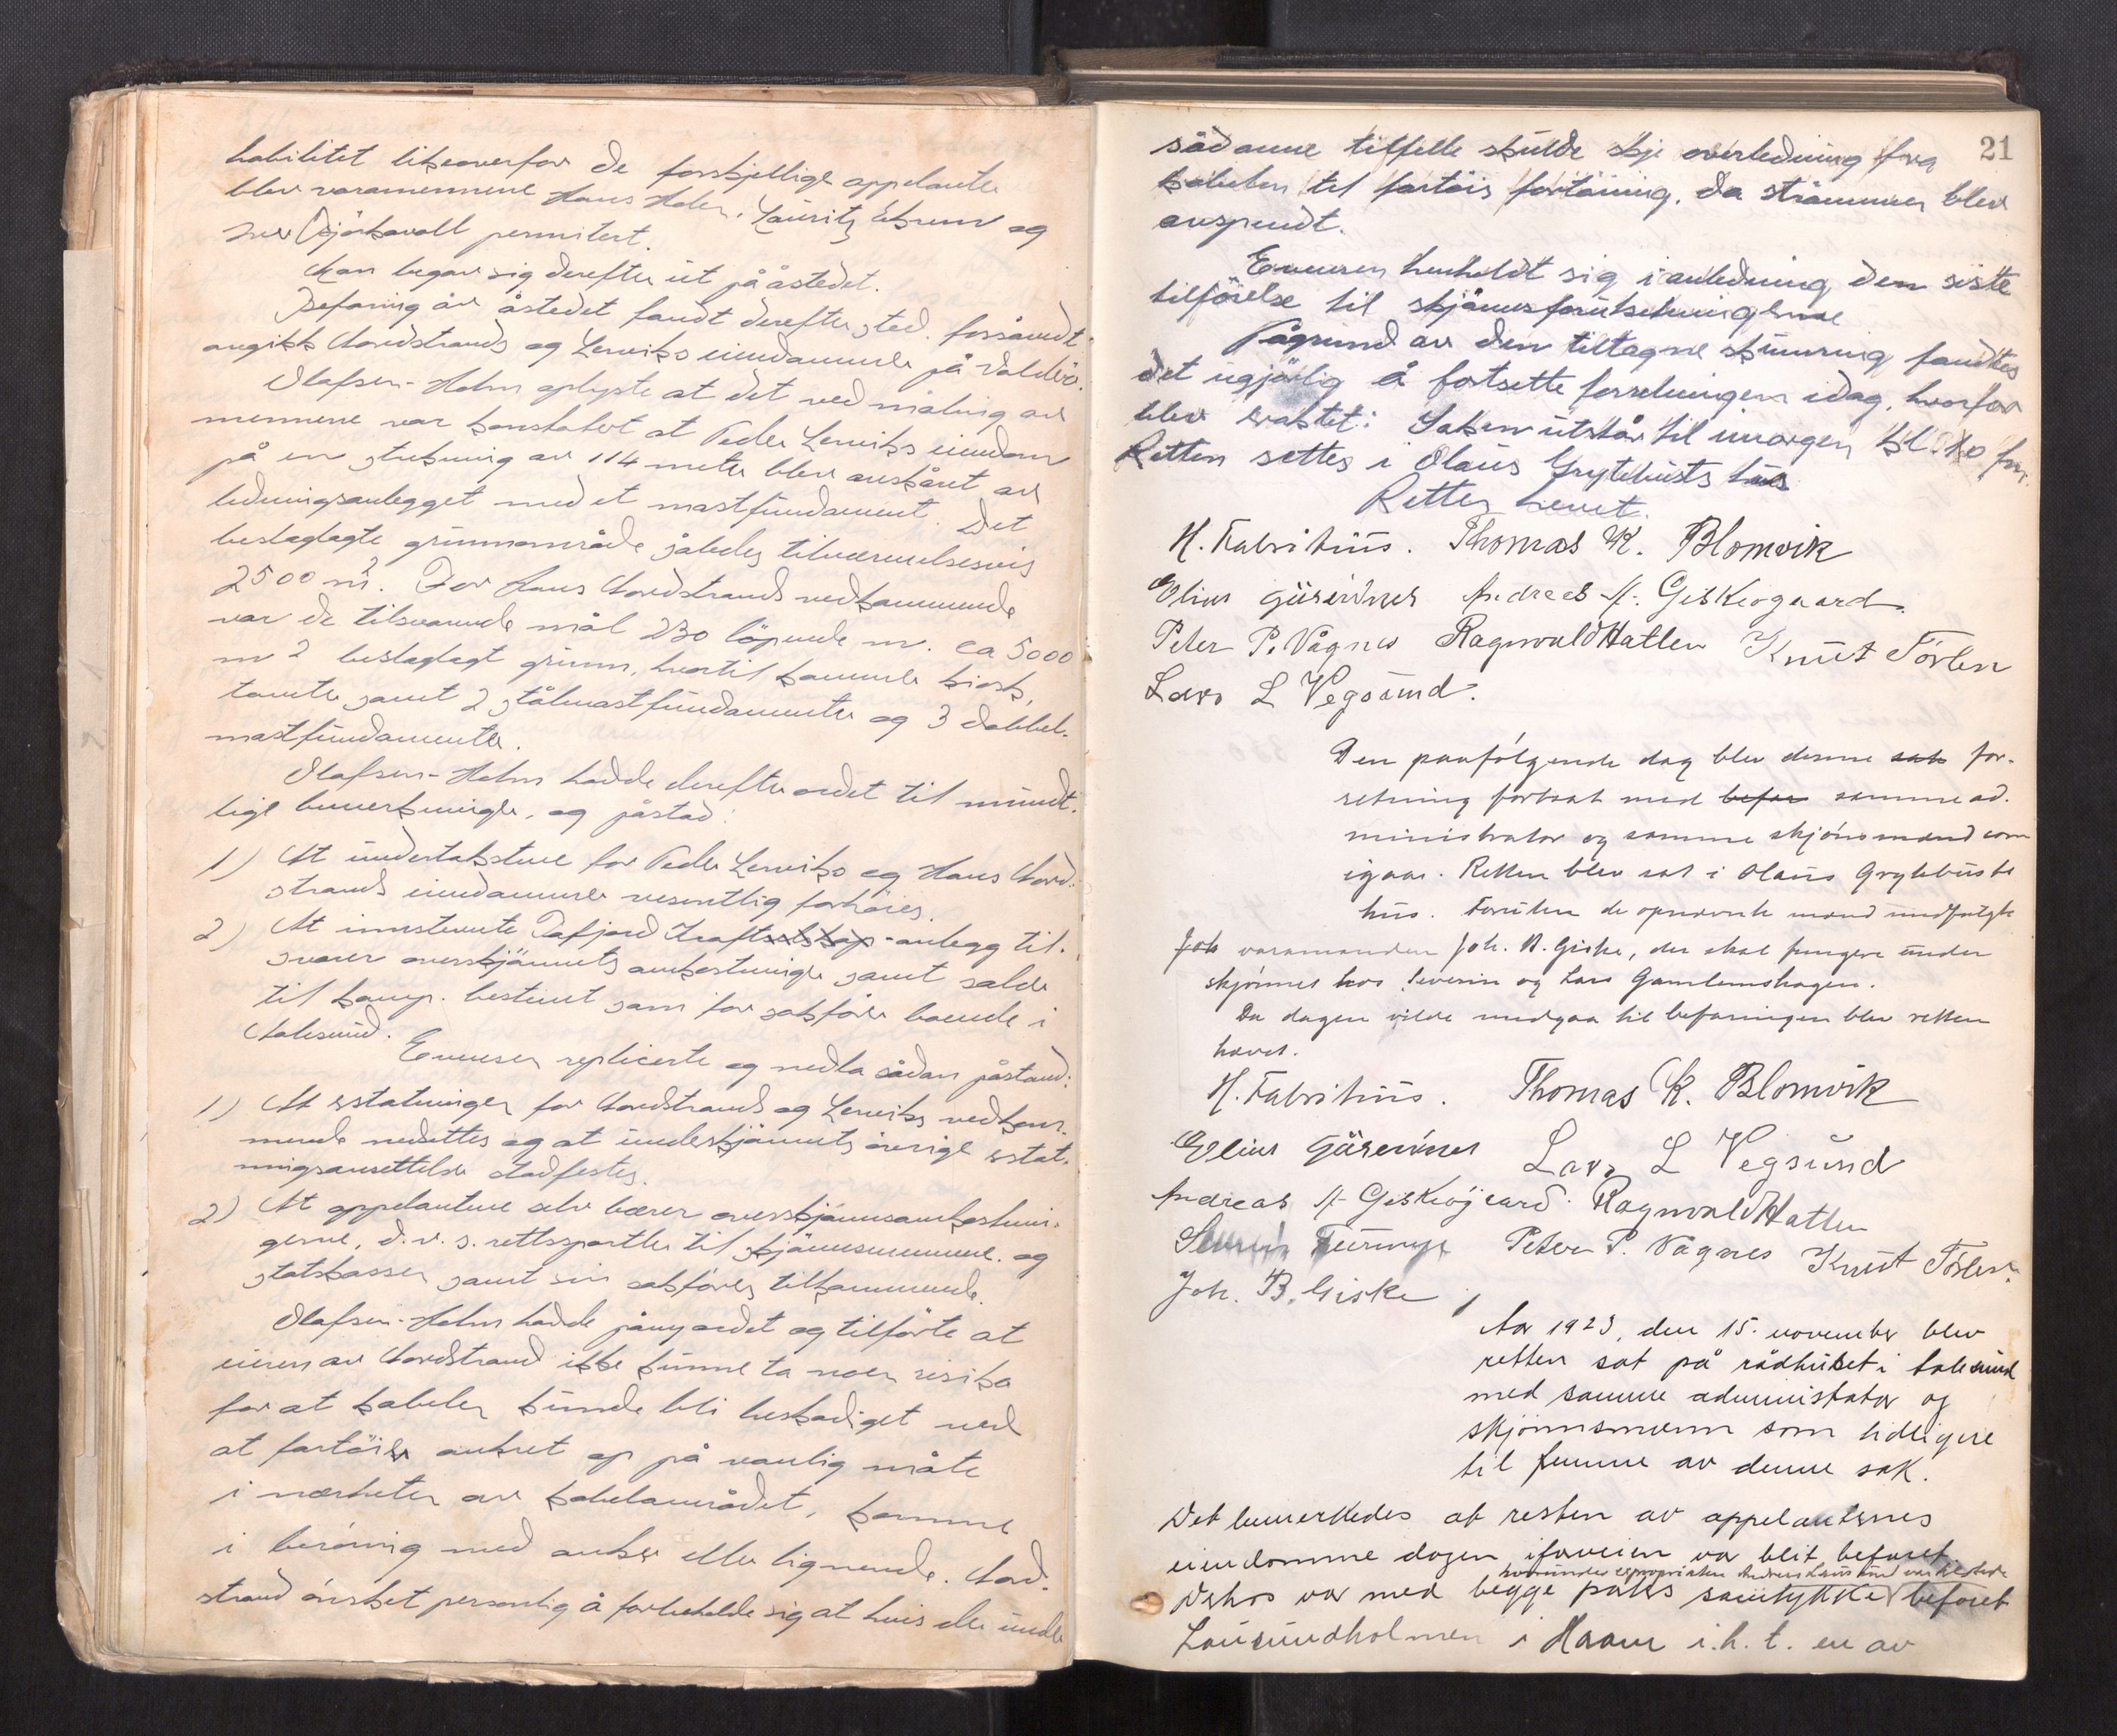 habilitet likeoverfor de forskjellige appelanter
blev varamennene Hans Holen, Lauritz Ekrem og
permitert.
Man begav sig derefter ut på åstedet.
Befaring av åstedet fandt derefter sted. forsåvidt
angikk Nordstrands og Lerviks eiendommer på Valderö.
Olafsen-Holm oplyste at det ved måling av
mennene var konstatert at Peder Lerviks eiendom
på en strekning av 114 meter blev avskåret av
ledningsanlegget med et mastfundament. Det
beslaglagte grunnområde således tilnærmelsesvis
2500 m². For Hans Nordstrands vedkommende
var de tilsvarende mål 230 löpende m. ca 5000
m² beslaglagt grunn, hvortil kommer kiosk,
tomter samt 2 stålmastfundamenter og 3 dobbel-
mastfundamenter.
Olafsen-Holm hadde derefter ordet til mundt-
lige bemerkninger, og påstod:
1) At undertakstene for Peder Lerviks og Hans Nord-
strands eiendommer vesentlig forhöies.
2) At innstevnte Tafjord Kraftselskap-anlegg til-
svarer overskjönnets omkostninger samt salær
til komp. bestemt som for sakförer boende i
Aalesund.
Evensen replicerte og nedla sådan påstand:
1) At erstatningen for Nordstrands og Lerviks vedkom-
mende nedsettes og at underskjönnets övrige erstat-
ningsansettelser stadfestes.
2) At appelantene selv bærer overskjönnsomkostnin-
gerne, d.v.s. rettssportler til skjönnsmennene og
statskassen samt sin sakförers tilkommende.
Olafsen-Holm hadde påny ordet og tilförte at
eieren av Nordstrand ikke kunne ta noen risiko
for at kabelen kunde bli beskadiget ved
at fartöier ankret op på vanlig måte
i nærheten av kabelområdet, komme
i beröring med anker eller lignende. Nord-
strand önsket personlig å forbeholde sig at hvis der under
21
sådanne tilfelle skulde skje overledning fra
kabelen til fartöis fortöining, da strömmen blev
avspendt.
Evensen henholdt sig i anledning den siste
tilförelse til skjönnsforutsetningene
Pågrund av den tiltagne skumring fandtes
det ugjörlig å fortsette forretningen idag, hvorfor
blev vaktet: Saken utstår til imorgen kl. 10 fm.
Retten settes i Olaus Grytebusts hus
Retten hevet.
H. Fabritius. Thomas K. Blomvik
Elias Andreas A. Giskeogaard.
Peter P. Vågnes Ragnvald Hatlen Knut Törlen
Lars L Vegsund.
Den paafølgende dag blev denne sak for-
retning fortsat med befar samme ad-
ministrator og samme skjönsmænd som
igaar. Retten blev sat i Olaus Grytebusts
hus. Foruten de opnævnte mænd medfulgte
Joh varamanden Joh. B. Giske, der skal fungere under
skjönnet hos Severin og Lars Gamlemshagen.
Da dagen vilde medgaa til befaringen blev retten
hævet.
H. Fabritius. Thomas K. Blomvik
Elias Lars L Vegsund
Andreas A Giskeøgaard. Ragnvald Hatlen
Peter P. Vågnes Knut Törlen.
Joh. B. Giske
Aar 1923, den 15. november blev
retten sat på rådhuset i Aalesund
med samme administrator og
skjönnsmenn som tidligere
til femme av denne sak.
Det bemerkedes at resten av appelantenes
eiendomme dagen iforveien var blit befaret,
hvorunder expropriaten Andreas var tilstede
Derhos var med begge parters samtykke befaret
Lausundholmen i Haram i.h.t. en av